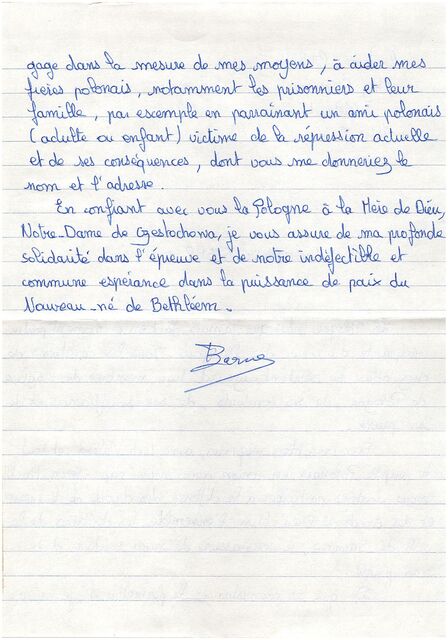 gage dans la mesure de mes moyens, à aider mes
frères polonais, notamment les prisonniers et leur
famille, par exemple en parrainant un ami polonais
(adulte ou enfant) victime de la répression actuelle
et de ses conséquences, dont vous me donneriez le
nom et l'adresse.
En confiant avec vous la Pologne à la Mère de Dieu,
Notre-Dame de Czestochowa, je vous assure de ma profonde
solidarité dans l'épreuve et de notre indéfectible et
commune espérance dans la puissance de paix du
Nouveau-né de Bethléem.